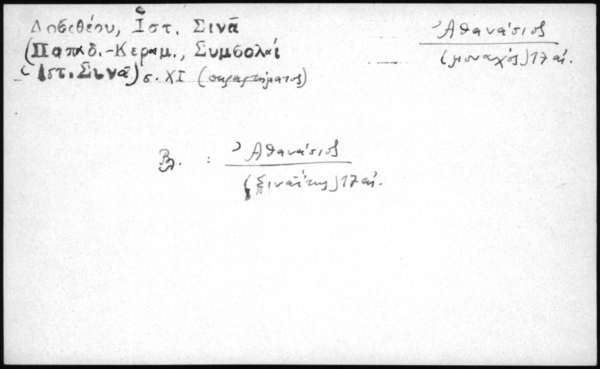 Δοσιθέου, Ἱστ. Σινᾶ
(Παπαδ.-Κεραμ., Συμβολαί
Ἱστ. Σινᾶ) σ. XI (παραρτήματος)
Ἀθανάσιος
(μοναχός) 17 αἰ.
Βλ. : Ἀθανάσιος
(Σιναΐτης) 17 αἰ.